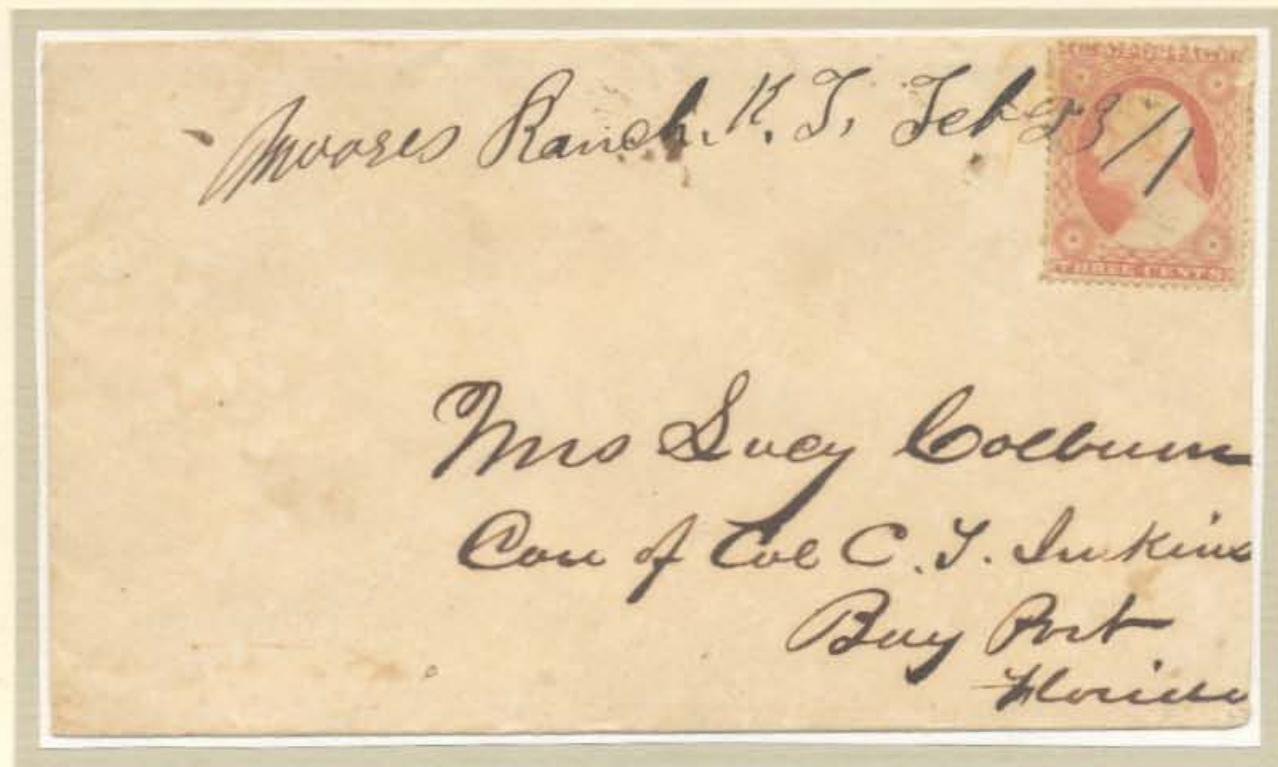 Moores Ranch. K. T. Feb 23/1
THREE CENTS
Mrs Lucy Colburn
Care of Col C. T. Jenkins
Bay Port
Florida